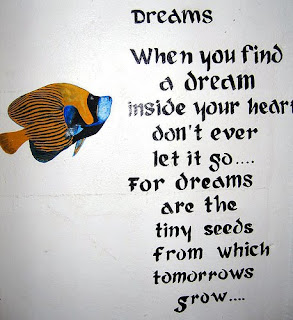 Dreams
When you find
a dream
inside your heart
don't ever
let it go....
For dreams
are the
tiny seeds
from which
tomorrows
grow....